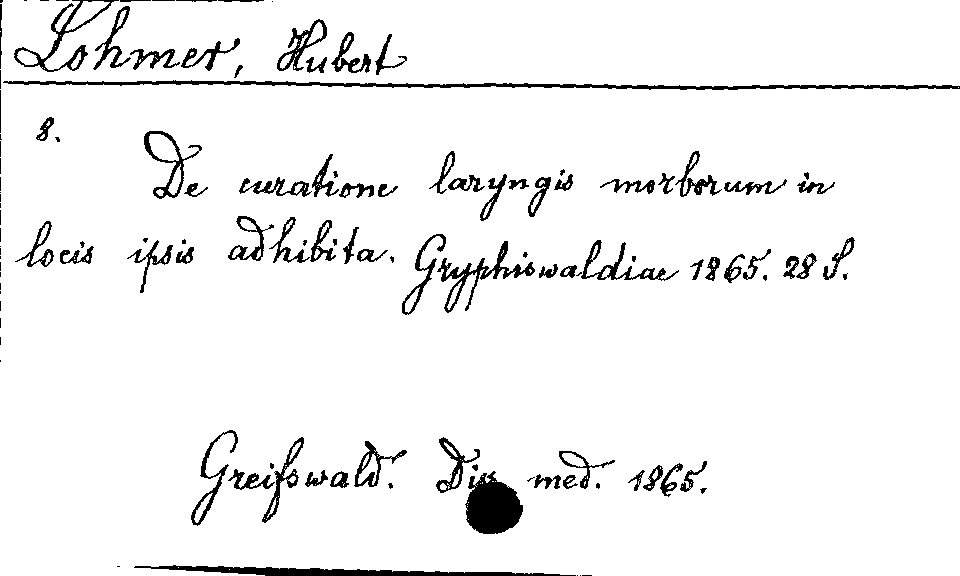 Lohmer, Hubert
8.
De curatione laryngis morborum in
locis ipsis adhibita. Gryphiswaldiae 1865. 28 S.
Greifswald. Diss med. 1865.